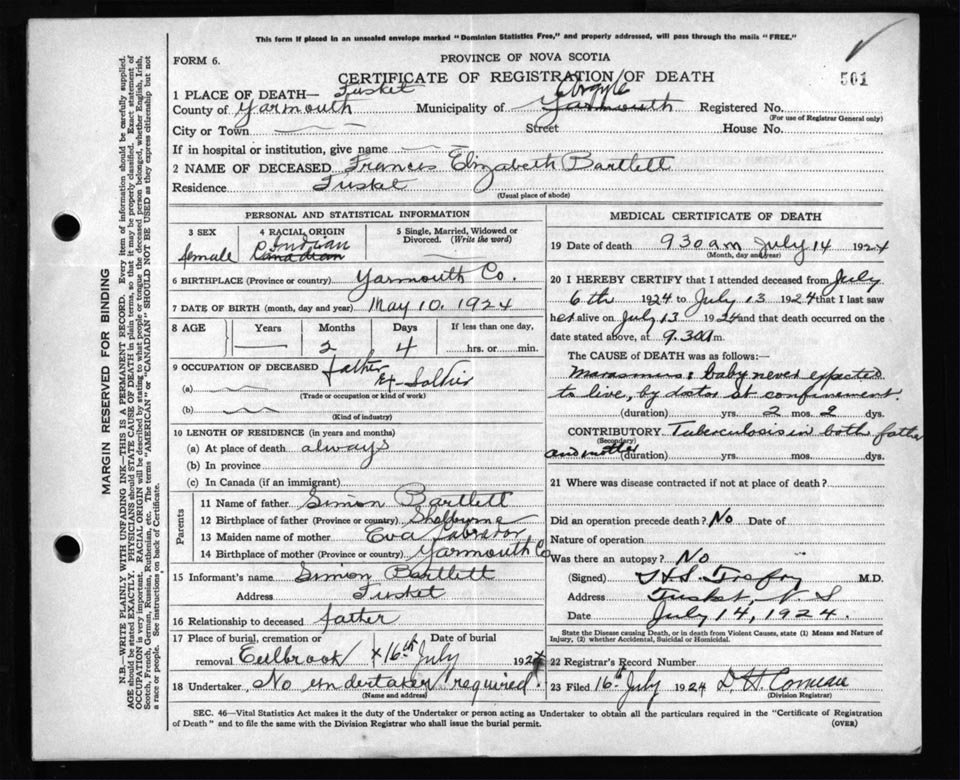 This form if placed in an unsealed envelope marked "Dominion Statistics Free," and properly addressed, will pass through the mails "FREE."
FORM 6.
PROVINCE OF NOVA SCOTIA
CERTIFICATE OF REGISTRATION OF DEATH
501
1 PLACE OF DEATH— Tusket
Argyle
County of Yarmouth Municipality of Yarmouth Registered No.
(For use of Registrar General only)
City or Town Street House No.
If in hospital or institution, give name
2 NAME OF DECEASED Frances Elizabeth Bartlett
Residence Tusket
(Usual place of abode)
MARGIN RESERVED FOR BINDING
N.B.—WRITE PLAINLY WITH UNFADING INK—THIS IS A PERMANENT RECORD. Every item of information should be carefully supplied.
AGE should be stated EXACTLY. PHYSICIANS should STATE CAUSE OF DEATH in plain terms, so that it may be properly classified. Exact statement of
OCCUPATION is very important. RACIAL ORIGIN will be described by stating to what people or tongue the deceased person belonged, whether English, Irish,
Scotch, French, German, Russian, Ruthenian, etc. The terms "AMERICAN" or "CANADIAN" SHOULD NOT BE USED as they express citizenship but not
a race or people. See instructions on back of Certificate.
PERSONAL AND STATISTICAL INFORMATION
3 SEX
female
4 RACIAL ORIGIN
Indian
Canadian
5 Single, Married, Widowed or
Divorced. (Write the word)
6 BIRTHPLACE (Province or country) Yarmouth Co.
7 DATE OF BIRTH (month, day and year) May 10, 1924
8 AGE Years Months Days If less than one day,
2 4 hrs. or min.
9 OCCUPATION OF DECEASED father
(a) Ex-Soldier
(Trade or occupation or kind of work)
(b)
(Kind of industry)
10 LENGTH OF RESIDENCE (in years and months)
(a) At place of death always
(b) In province
(c) In Canada (if an immigrant)
Parents
11 Name of father Simon Bartlett
12 Birthplace of father (Province or country) Shelburne
13 Maiden name of mother Eva Labrador
14 Birthplace of mother (Province or country) Yarmouth Co
15 Informant's name Simon Bartlett
Address Tusket
16 Relationship to deceased father
17 Place of burial, cremation or Date of burial
removal Eelbrook x 16th July 1924
18 Undertaker No undertaker required.
(Name and address)
MEDICAL CERTIFICATE OF DEATH
19 Date of death 9 30 am July 14 1924
(Month, day and year)
20 I HEREBY CERTIFY that I attended deceased from July
6th 1924 to July 13 1924 that I last saw
her alive on July 13 1924 and that death occurred on the
date stated above, at 9.30 a m.
The CAUSE OF DEATH was as follows:—
Marasmus: baby never expected
to live, by doctor at confinement.
(duration) yrs. 2 mos. 2 dys.
CONTRIBUTORY Tuberculosis in both father
(Secondary)
and mother (duration) yrs. mos. dys.
21 Where was disease contracted if not at place of death?
Did an operation precede death? No Date of
Nature of operation
Was there an autopsy? No
(Signed) Trefry M.D.
Address Tusket, N S
Date July 14, 1924.
State the Disease causing Death, or in death from Violent Causes, state (1) Means and Nature of
Injury, (2) whether Accidental, Suicidal or Homicidal.
22 Registrar's Record Number
23 Filed 16th July 1924 D. H. Comeau
(Division Registrar)
SEC. 46—Vital Statistics Act makes it the duty of the Undertaker or person acting as Undertaker to obtain all the particulars required in the "Certificate of Registration
of Death" and to file the same with the Division Registrar who shall issue the burial permit. (OVER)